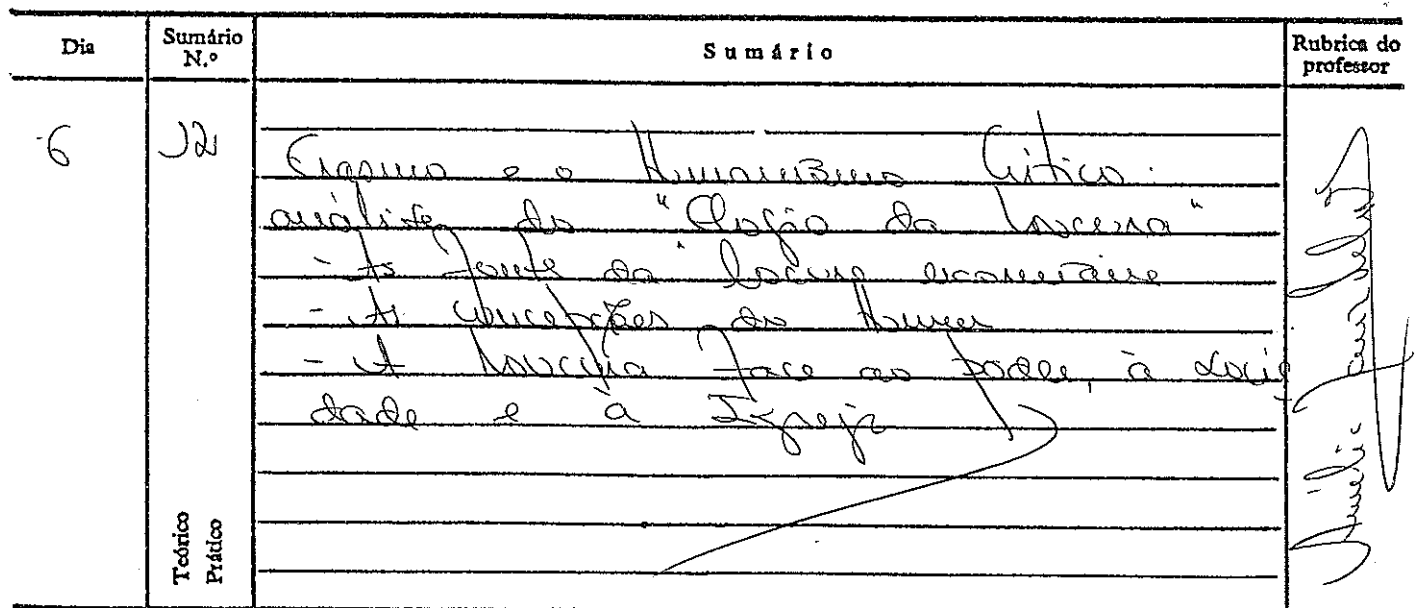 Dia
Sumário N.º
Sumário
Rubrica do professor
6
12
Erasmo e o Humanismo Crítico:
análise do "Elogio da Loucura"
- As fontes da loucura erasmiana
- As concepções do Humor
- A Loucura face ao poder, à socie
dade e à Igreja
Teórico
Prático